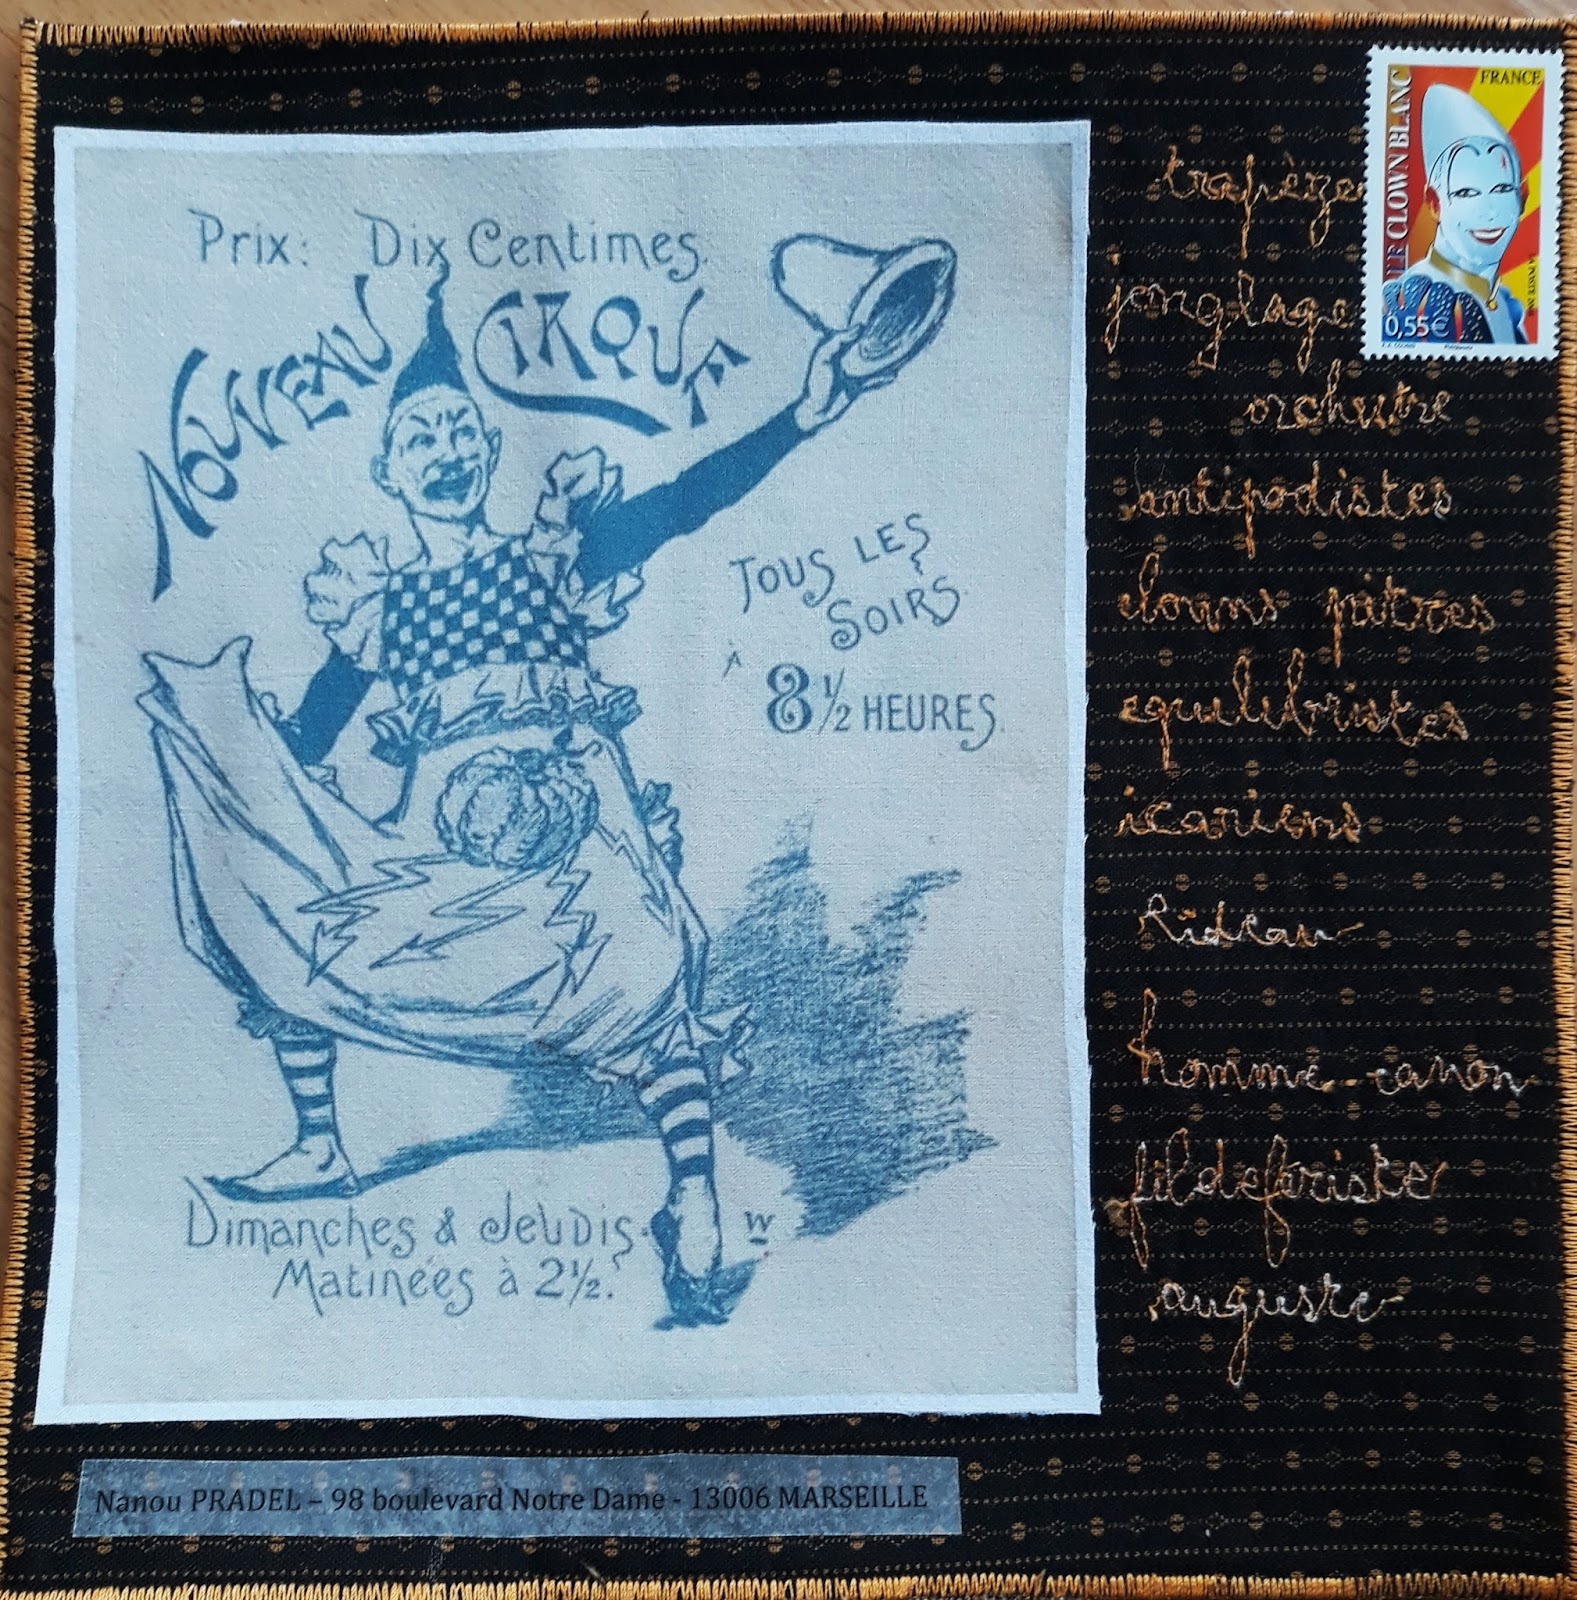 Prix: Dix Centimes.
NOUVEAU CIRQUE
TOUS LES
SOIRS.
À
8 1/2 HEURES.
Dimanches & Jeudis.
Matinées à 2 1/2.
W
FRANCE
LE CLOWN BLANC
0,55€
trapèze
jonglage
orchestre
antipodistes
clowns pitres
equilibristes
icariens
Rideau
homme-canon
fildefériste
auguste
Nanou PRADEL – 98 boulevard Notre Dame - 13006 MARSEILLE